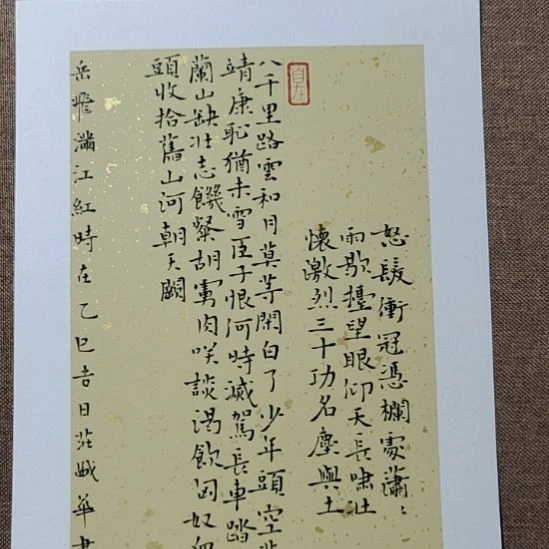 怒髮衝冠憑欄處瀟〻
雨歇擡望眼仰天長嘯壯
懷激烈三十功名塵與土
八千里路雲和月莫等閑白了少年頭空悲
靖康恥猶未雪臣子恨何時滅駕長車踏
蘭山缺壯志饑餐胡虜肉咲談渴飲匈奴血
頭收拾舊山河朝天闕
岳飛滿江紅時在乙巳吉日莊城華書